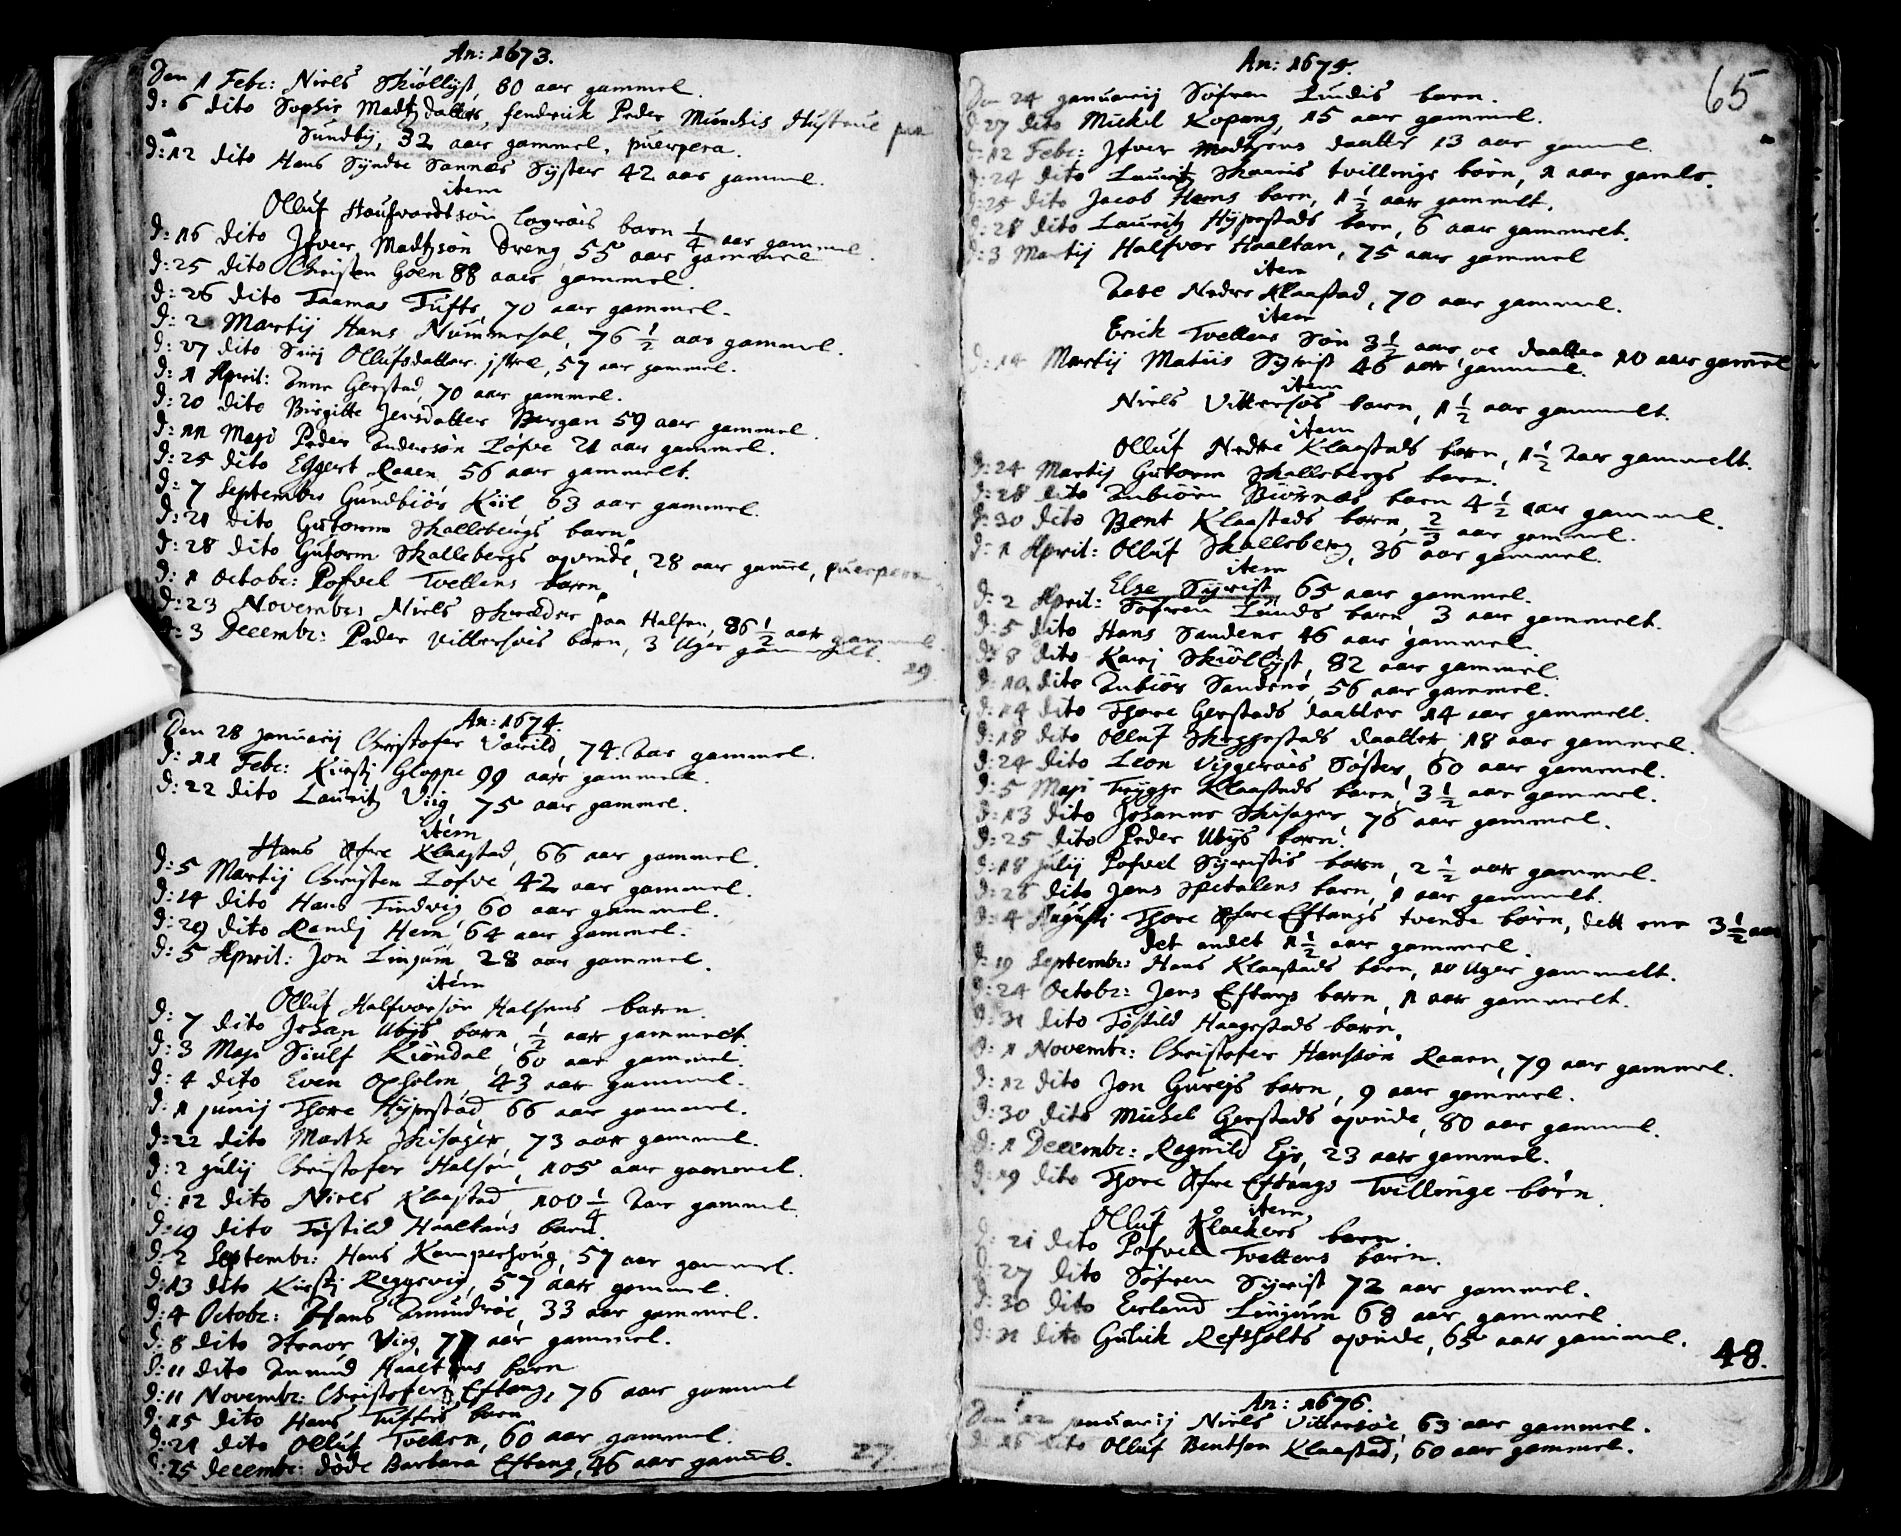 An: 1673.
Den 1 Febr: Niels Skiøllist, 80 aar gammel.
D: 6 dito Sophie Madtzdatter, fendrick Peder Munchis Hustrue paa
Sundby, 32 aar gammel, puerpera.
D: 12 dito Hans Syndre Sannes Syster 42 aar gammel.
item
Olluf Haufvordtsøn barn 1/4 aar gammel.
D: 16 dito Jfver Madtzsøn Dreng 55 aar gammel
D: 25 dito Christen Goen 88 aar gammel.
D: 26 dito Taamas Tufte, 70 aar gammel.
D: 2 Martij Hans Nummesal, 76 1/2 aar gammel.
D: 27 dito Siri Ollufsdatter Istre, 57 aar gammel.
D: 1 April: Anne Gerstad, 70 aar gammel.
D: 20 dito Birgitte Jensdatter Bergan 59 aar gammel.
D: 11 Maji Peder Andersøn Løfve 21 aar gammel.
D: 25 dito Eggert Raaen 56 aar gammelt.
D: 7 Septembr Gundbiør Kiil 63 aar gammel.
D: 21 dito Gutorm Skallebergs barn
D: 28 dito Gutorm Skallebergs qvinde, 28 aar gamel, puerpera
D: 1 Octobr: Pofvel Tvettens barn
D: 23 Novembr Niels Skredder paa Halsen, 86 1/2 aar gammel.
D: 3 Decembr: Peder Vittersøes barn, 3 Uger gammelt.
29
An: 1674.
Den 28 Januarij Christofer Varild, 74 Aar gammel.
D: 11 Febr: Kirsti Gloppe 99 aar gammel.
D: 22 dito Lauritz Viig 75 aar gammel.
item
Hans Øfre Klaastad, 66 aar gammel.
D: 5 Martij Christen Løfve 42 aar gammel.
D: 14 dito Hans Tindvig 60 aar gammel.
D: 29 dito Randj Hem 64 aar gammel.
D: 5 April: Jon Lingum 28 aar gammel.
item
Olluf Halfvorsøn Halsens barn.
D: 7 dito Johan Ubys barn, 1/2 aar gammelt
D: 3 Maji Siulf Kiøndal, 60 aar gammel.
D: 4 dito Even Opholm, 43 aar gammel.
D: 1 Junij Thore Hypestad 66 aar gammel.
D: 22 dito Marthe Skisager, 73 aar gammel.
D: 2 Julij Christofer Halsen, 105 aar gammel.
D: 12 dito Niels Klaastad, 100 1/4 Aar gammel
D: 19 dito Tostild Haaltans barn.
D: 2 Septembr: Hans Kampershoug, 57 aar gammel.
D: 13 dito Kirsti Reggevig, 57 aar gammel.
D: 4 Octobr: Hans Amundrøe, 33 aar gammel.
D: 8 dito Stener Viig, 77 aar gammel.
D: 11 dito Amund Haaltans barn
D: 11 Novembr: Christofer Eftang, 76 aar gammel
D: 15 dito Hans Tuftes barn
D: 21 dito Olluf Tveten, 60 aar gammel.
D: 25 Decembr: døde Barbara Eftang, 46 aar gamel.
27
65
An: 1675.
Den 24 Januarij Søfren Lundis barn.
D: 27 dito Mickil Kopang 15 aar gammel.
D: 12 Febr: Jfver Madtzens daatter 13 aar gammel.
D: 24 dito Lauritz tvillinge børn, 1 aar gamle.
D: 25 dito Jacob Hems barn, 1 1/2 aar gammelt.
D: 28 dito Lauritz Hypestads barn, 6 aar gammelt.
D: 3 Martij Halfvor Haaltan, 75 aar gammel
item
Aase Nedre Klaastad, 70 aar gammel.
item
Erick Tvettens Søn 3 1/2 aar, oc daatter 10 aar gamel
D: 14 Martij Matiis Syrist 46 aar gammel.
item
Niels Vittersøs barn, 1 1/2 aar gammelt.
item
Olluf Nedre Klaastads barn, 1 1/2 Aar gammelt.
D: 24 Martij Gutorm Skallebergs barn.
D: 28 dito Anbiørn Biørnes barn 4 1/2 aar gammel.
D: 30 dito Bent Klaastads barn, 2/3 aar gammel.
D: 1 April: Olluf Skalleberg, 36 aar gammel.
item
Else Syrist 65 aar gammel.
D: 2 April: Søfren Lunds barn 3 aar gammelt.
D: 5 dito Hans Sandene 46 aar gammel.
D: 8 dito Karj Skiøllist, 82 aar gammel.
D: 10 dito Anbiør Sandene, 56 aar gammel.
D: 14 dito Thore Gerstads daatter 14 aar gammell.
D: 18 dito Olluf Skeggestads daatter, 18 aar gammel.
D: 24 dito Leon Viggerøes Søster, 60 aar gammel.
D: 5 Maji Trygge Klaastads barn, 3 1/2 aar gammel.
D: 13 dito Johanne Skisager 76 aar gammel.
D: 25 dito Peder Ubys barn.
D: 18 Julij Pofvel Syristis barn, 2 1/2 aar gammel.
D: 26 dito Jens Spitalens barn, 1 aar gammelt.
D: 4 Augusti Thore Øfre Eftangs tvende børn, dett ene 3 1/2 aar
det andet 1 1/2 aar gammel.
D: 19 Septembr: Hans Klaastads barn, 10 Uger gammelt.
D: 24 Octobr: Jens Eftangs barn, 1 aar gammelt.
D: 31 dito Tøstild Haagestads barn.
D: 1 Novembr: Christofer Hanssøn Raaen, 79 aar gammel.
D: 12 dito Jon Gureys barn, 9 aar gammel.
D: 30 dito Michel Gerstads qvinde, 80 aar gammel.
D: 1 Decembr: Regnild Eje, 23 aar gammel.
D: 19 dito Thore Øfre Eftangs Tvillinge børn
item
Olluf Klaekers barn.
D: 21 dito Pofvel Tvettens barn.
D: 27 dito Søfren Syrist 72 aar gammel.
D: 30 dito Erland Lingum 68 aar gammel
D: 31 dito Gulick Refsholts qvinde, 65 aar gammel.
48.
An: 1676.
Den 12 Januarij Niels Vittersøe, 63 aar gammel.
D: 16 dito Olluf Bentson Klaastad, 60 aar gammel.